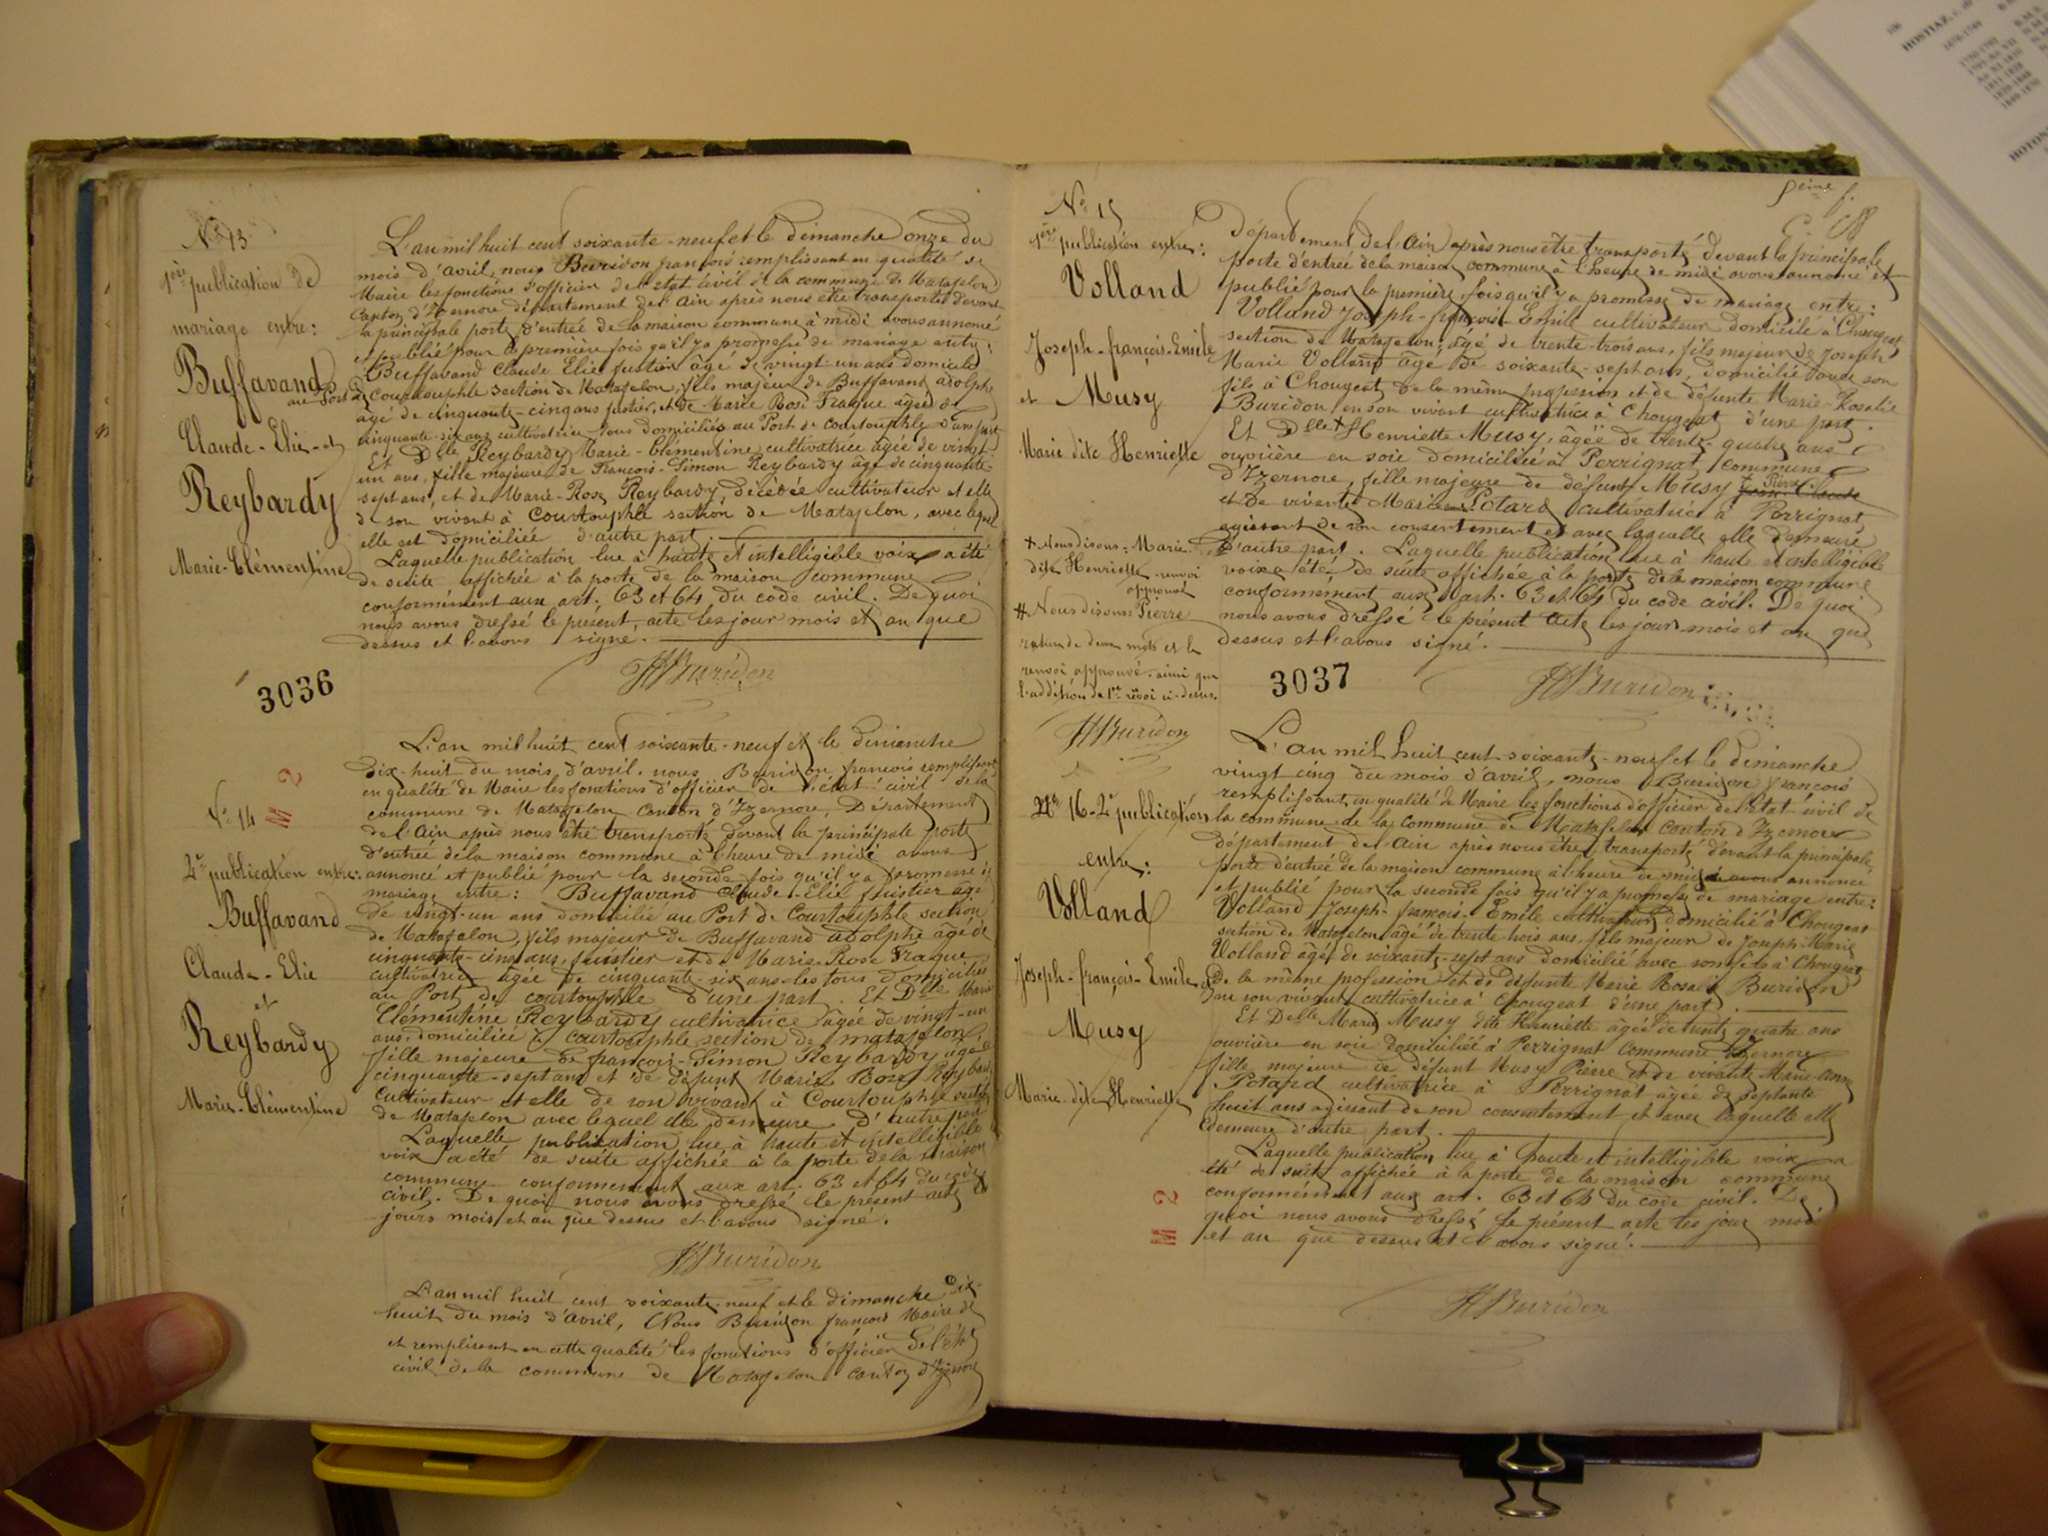 No 13
1ère publication de
mariage entre:
Buffavand
Claude-Elie et
Reybardy
Marie-Clémentine
L'an mil huit cent soixante-neuf et le dimanche onze du
mois d'avril, nous Buridon françois remplissant en qualité de
Maire les fonctions d'officier de l'état civil de la commune de Matafelon
canton d'Izernore département de l'Ain après nous être transporté devant
la principale porte d'entrée de la maison commune à midi avons annoncé
et publié pour la première fois qu'il y a promesse de mariage entre:
Buffavand Claude Elie fustier âgé de vingt-un ans domicilié
au Port de Courtouphle section de Matafelon, fils majeur de Buffavand adolphe
âgé de cinquante-cinq ans fustier, et de Marie Rose Fraque âgée de
cinquante-six ans cultivatrice tous domiciliés au Port de Courtouphle d'une part
Et Dlle Reybardy Marie-Clémentine cultivatrice âgée de vingt-
un ans, fille majeure de François-Simon Reybardy âgé de cinquante-
sept ans, et de Marie-Rose Reybardy, décédée cultivateur et elle
de son vivant à Courtouphle section de Matafelon, avec lequel
elle est domiciliée d'autre part
Laquelle publication lue à haute et intelligible voix a été
de suite affichée à la porte de la maison commune
conformément aux art. 63 et 64 du code civil. De quoi
nous avons dressé le présent acte les jour mois et an que
dessus et l'avons signé.
Buridon
3036
No 14
M 2
2e publication entre:
Buffavand
Claude-Elie
et
Reybardy
Marie-Clémentine
L'an mil huit cent soixante-neuf et le dimanche
dix-huit du mois d'avril. nous Buridon françois remplissant
en qualité de Maire les fonctions d'officier de l'état civil de la
commune de Matafelon Canton d'Izernore, Département
de l'Ain après nous être transporté devant la principale porte
d'entrée de la maison commune à l'heure de midi avons
annoncé et publié pour la seconde fois qu'il y a promesse de
mariage entre: Buffavand Claude-Elie fustier âgé
de vingt-un ans domicilié au Port de Courtouphle section
de Matafelon, fils majeur de Buffavand adolphe âgé de
cinquante-cinq ans, fustier et de Marie-Rose Fraque
cultivatrice âgée de cinquante-six ans les tous domiciliés
au Port de courtouphle d'une part. Et Dlle Marie
Clémentine Reybardy cultivatrice âgée de vingt-un
ans, domiciliée à courtouphle section de matafelon
fille majeure de françois-Simon Reybardy âgé de
cinquante-sept ans et de défunt Marie Rose Reybardy
Cultivateur et elle de son vivant à Courtouphle section
de Matafelon avec lequel elle demeure d'autre part
Laquelle publication lue à haute et intelligible
voix a été de suite affichée à la porte de la maison
commune conformément aux art. 63 et 64 du code
civil. De quoi nous avons dressé le présent acte les
jours mois et an que dessus et l'avons signé.
Buridon
L'an mil huit cent soixante-neuf et le dimanche dix-
huit du mois d'avril, Nous Buridon françois Maire de
et remplissant en cette qualité les fonctions d'officier de l'état
civil de la commune de Matafelon canton d'Izernore
No 15
1ère publication entre:
Volland
Joseph-françois-Emile
et Musy
Marie dite Henriette
+ Nous disons: Marie
dite Henriette renvoi
approuvé
# Nous disons Pierre
rature de deux mots et le
renvoi approuvé ainsi que
l'addition de 1er renvoi ci-dessus.
Buridon
Département de l'Ain après nous être transporté devant la principale
porte d'entrée de la maison commune à l'heure de midi avons annoncé et
publié pour la première fois qu'il y a promesse de mariage entre:
Volland Joseph-françois-Emile cultivateur domicilié à Chougeat
section de Matafelon, âgé de trente-trois ans, fils majeur de Joseph
Marie Volland âgé de soixante-sept ans, domicilié avec son
fils à Chougeat de la même profession et de défunte Marie-Rosalie
Buridon en son vivant cultivatrice à Chougeat d'une part.
Et Dlle + Henriette Musy, âgée de trente-quatre ans
ouvrière en soie domiciliée à Perrignat commune
d'Izernore, fille majeure de défunt Musy # Pierre
et de vivante Marie-anne Potard cultivatrice à Perrignat
agissant de son consentement et avec laquelle elle demeure
d'autre part. Laquelle publication lue à haute et intelligible
voix a été, de suite affichée à la porte de la maison commune
conformément aux art. 63 et 64 du code civil. De quoi
nous avons dressé le présent acte les jours mois et an que
dessus et l'avons signé.
3037
Buridon
No 16. 2e publication
entre:
Volland
Joseph-françois-Emile
Musy
Marie-dite Henriette
L'an mil huit cent soixante-neuf et le dimanche
vingt cinq du mois d'avril, nous Buridon françois
remplissant en qualité de Maire les fonctions d'officier de l'état civil de
la commune de la commune de Matafelon canton d'Izernore
département de l'Ain après nous être transporté devant la principale
porte d'entrée de la maison commune à l'heure de midi avons annoncé
et publié pour la seconde fois qu'il y a promesse de mariage entre:
Volland Joseph-françois-Emile cultivateur domicilié à Chougeat
section de Matafelon âgé de trente trois ans, fils majeur de Joseph-Marie
Volland âgé de soixante-sept ans domicilié avec son fils à Chougeat
de la même profession et de défunte Marie Rosalie Buridon
en son vivant cultivatrice à Chougeat d'une part.
Et Delle Marie Musy dite Henriette âgée de trente quatre ans
ouvrière en soie domiciliée à Perrignat commune d'Izernore
fille majeure de défunt Musy Pierre et de vivante Marie-anne
Potard cultivatrice à Perrignat âgée de septante
huit ans agissant de son consentement et avec laquelle elle
demeure d'autre part.
Laquelle publication lue à haute et intelligible voix a
été de suite affichée à la porte de la maison commune
conformément aux art. 63 et 64 du code civil. De
quoi nous avons dressé le présent acte les jour mois
et an que dessus et l'avons signé.
M 2
Buridon
HOSTIAZ